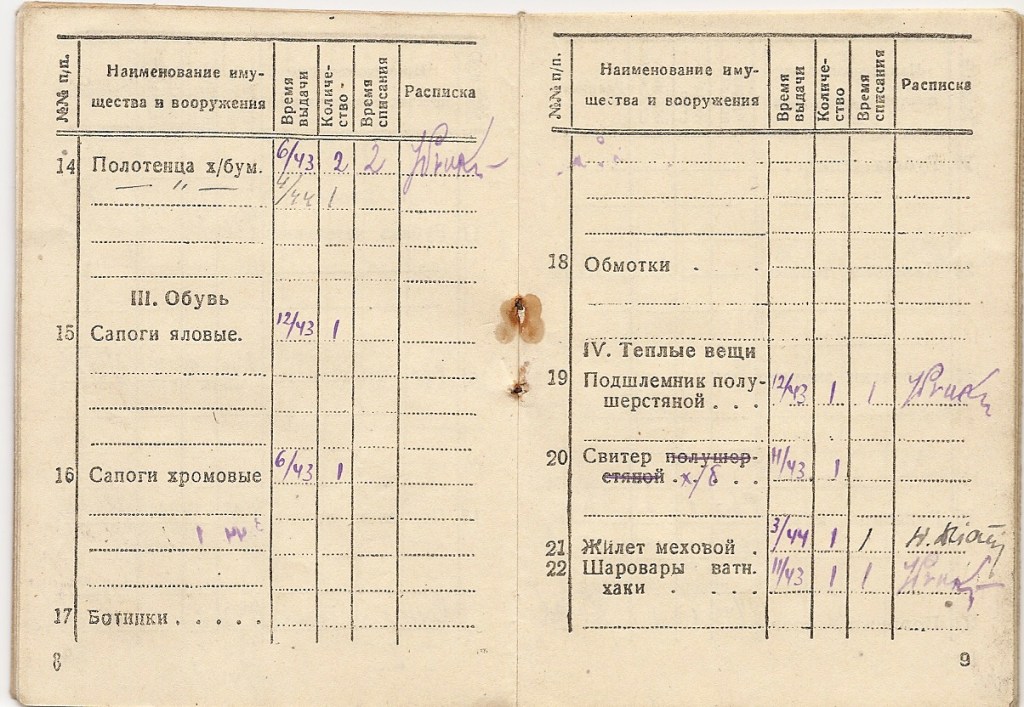 №№ п/п. Наименование иму-щества и вооружения Время выдачи Количе-ство - Время списания Расписка
14 Полотенца х/бум. 6/43 2 2
— " — 4/44 1
III. Обувь
15 Сапоги яловые. 12/43 1
16 Сапоги хромовые 6/43 1
17 Ботинки . . . . .
8
№№ п/п. Наименование иму-щества и вооружения Время выдачи Количе-ство Время списания Расписка
18 Обмотки . .
IV. Теплые вещи
19 Подшлемник полу-
шерстяной . . . 12/43 1 1
20 Свитер полушер-
стяной . х/б . . 11/43 1
21 Жилет меховой . 3/44 1 1
22 Шаровары ватн.
хаки . . . . 11/43 1 1
9